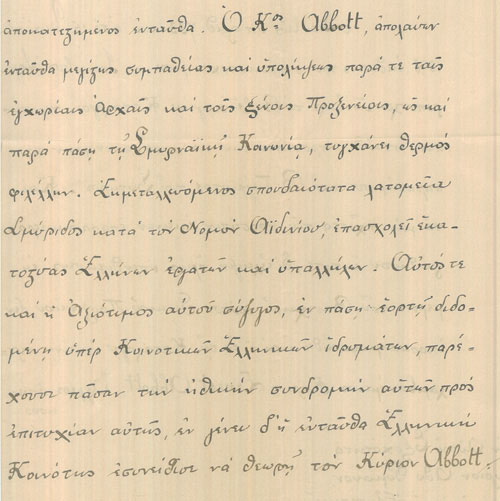 ἀποκατεστημένος ἐνταῦθα. Ὁ Κος Abbott, ἀπολαύων
ἐνταῦθα μεγίστης συμπαθείας καὶ ὑπολήψεως παρά τε ταῖς
ἐγχωρίαις Ἀρχαῖς καὶ τοῖς ξένοις Προξενείοις, ὡς καὶ
παρὰ πάσῃ τῇ Σμυρναϊκῇ Κοινωνίᾳ, τυγχάνει θερμὸς
φιλέλλην. Ἐκμεταλλευόμενος σπουδαιότατα λατομεῖα
Σμύριδος κατὰ τὸν Νομὸν Ἀϊδινίου, ἐπασχολεῖ ἑκα-
τοστύας Ἑλλήνων ἐργατῶν καὶ ὑπαλλήλων. Αὐτός τε
καὶ ἡ Ἀξιότιμος αὐτοῦ σύζυγος, ἐν πάσῃ ἑορτῇ διδο-
μένῃ ὑπὲρ Κοινοτικῶν Ἑλληνικῶν ἱδρυμάτων, παρέ-
χουσι πᾶσαν τὴν ἠθικὴν συνδρομὴν αὐτῶν πρὸς
ἐπιτυχίαν αὐτῆς, ἐν γένει δ' ἡ ἐνταῦθα Ἑλληνικὴ
Κοινότης ἐσυνείθισε νὰ θεωρῇ τὸν Κύριον Abbott